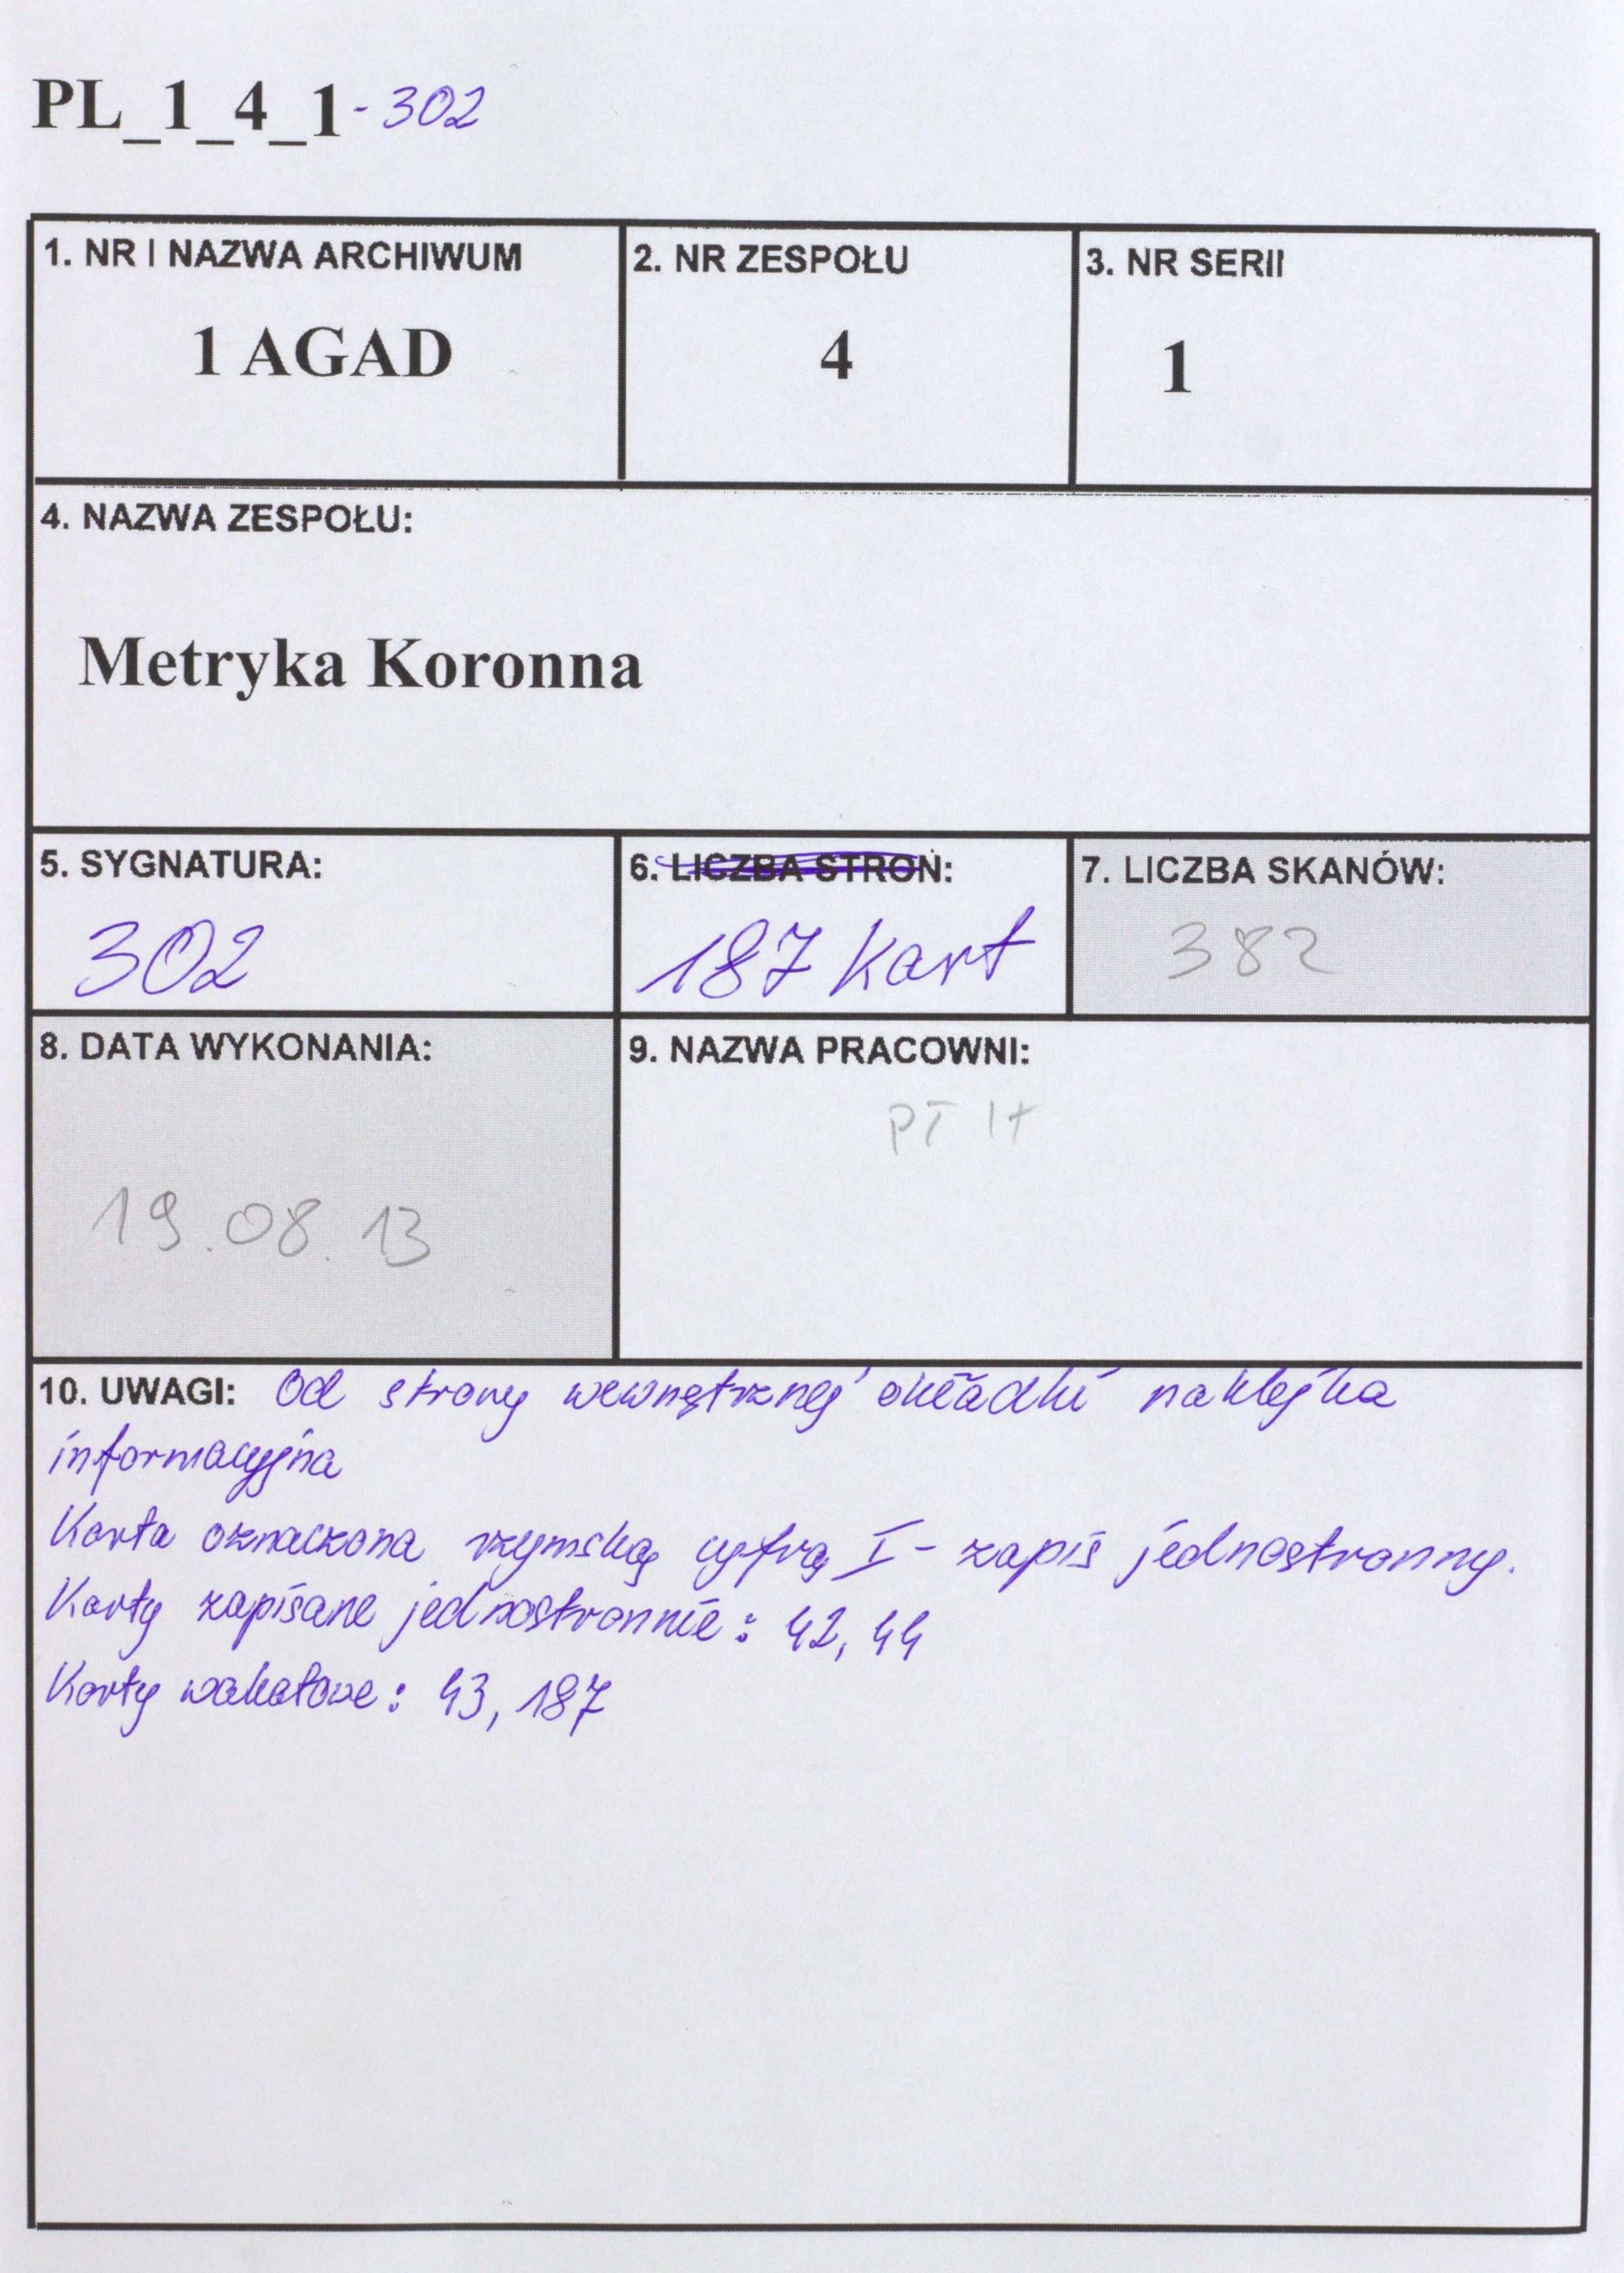 PL_1_4_1-302
1. NR I NAZWA ARCHIWUM
1 AGAD
2. NR ZESPOŁU
4
3. NR SERII
1
4. NAZWA ZESPOŁU:
Metryka Koronna
5. SYGNATURA:
302
6. LICZBA STRON:
187 kart
7. LICZBA SKANÓW:
382
8. DATA WYKONANIA:
19.08.13
9. NAZWA PRACOWNI:
PT
10. UWAGI: Od strony wewnętrznej okładki naklejka
informacyjna
Karta oznaczona rzymską cyfrą I - zapis jednostronny.
Karty zapisane jednostronnie: 42, 44
Karty wakatowe: 43, 187